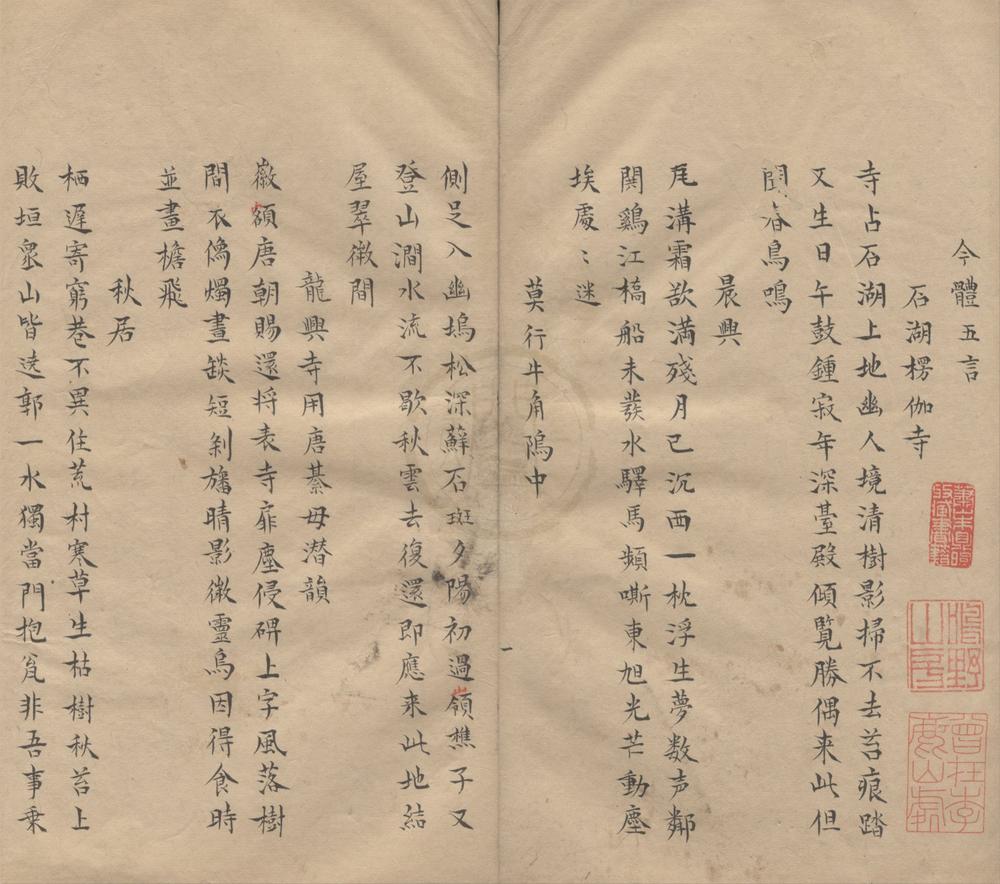 今體五言
石湖楞伽寺
寺占石湖上地幽人境清樹影掃不去苔痕踏
又生日午鼓鍾寂年深臺殿傾覽勝偶来此但
聞春鳥鳴
晨興
瓦溝霜欲满殘月已沉西一枕浮生夢数声鄰
関鷄江橋船未發水驛馬頻嘶東旭光芒動塵
埃處〻迷
莫行牛角隝中
側足入幽塢松深蘚石斑夕陽初過嶺樵子又
登山澗水流不歇秋雲去復還即應来此地結
屋翠微間
龍興寺用唐綦毋潜韻
徽額唐朝賜還将表寺扉塵侵碑上字風落樹
間衣偽燭晝燄短刹旛晴影微靈烏因得食時
並畫檐飛
秋居
栖遲寄窮巷不異住荒村寒草生枯樹秋苔上
敗垣衆山皆遶郭一水獨當門抱瓮非吾事乗